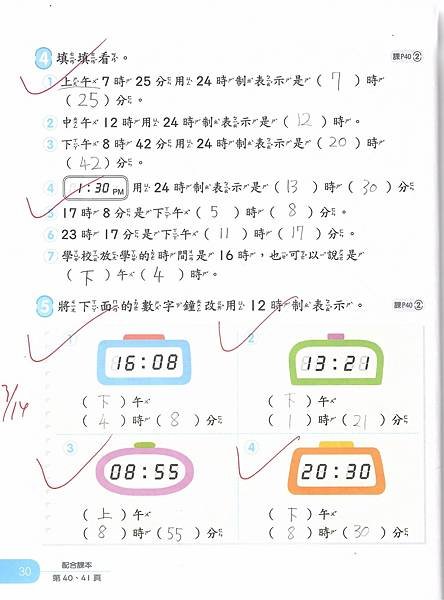 4 填填看。 課P40 ②
① 上午 7 時 25 分用 24 時制表示是( 7 )時
( 25 )分。
② 中午 12 時用 24 時制表示是( 12 )時。
③ 下午 8 時 42 分用 24 時制表示是( 20 )時
( 42 )分。
④ 1:30 PM 用 24 時制表示是( 13 )時( 30 )分
⑤ 17 時 8 分是下午( 5 )時( 8 )分。
⑥ 23 時 17 分是下午( 11 )時( 17 )分。
⑦ 學校放學的時間是 16 時,也可以說是
( 下 )午( 4 )時。
5 將下面的數字鐘改用 12 時制表示。 課P40 ②
1 2
16:08 13:21
( 下 )午 ( 下 )午
( 4 )時( 8 )分 ( 1 )時( 21 )分
3/14
3 4
08:55 20:30
( 上 )午 ( 下 )午
( 8 )時( 55 )分 ( 8 )時( 30 )分
30 配合課本
第 40、41 頁